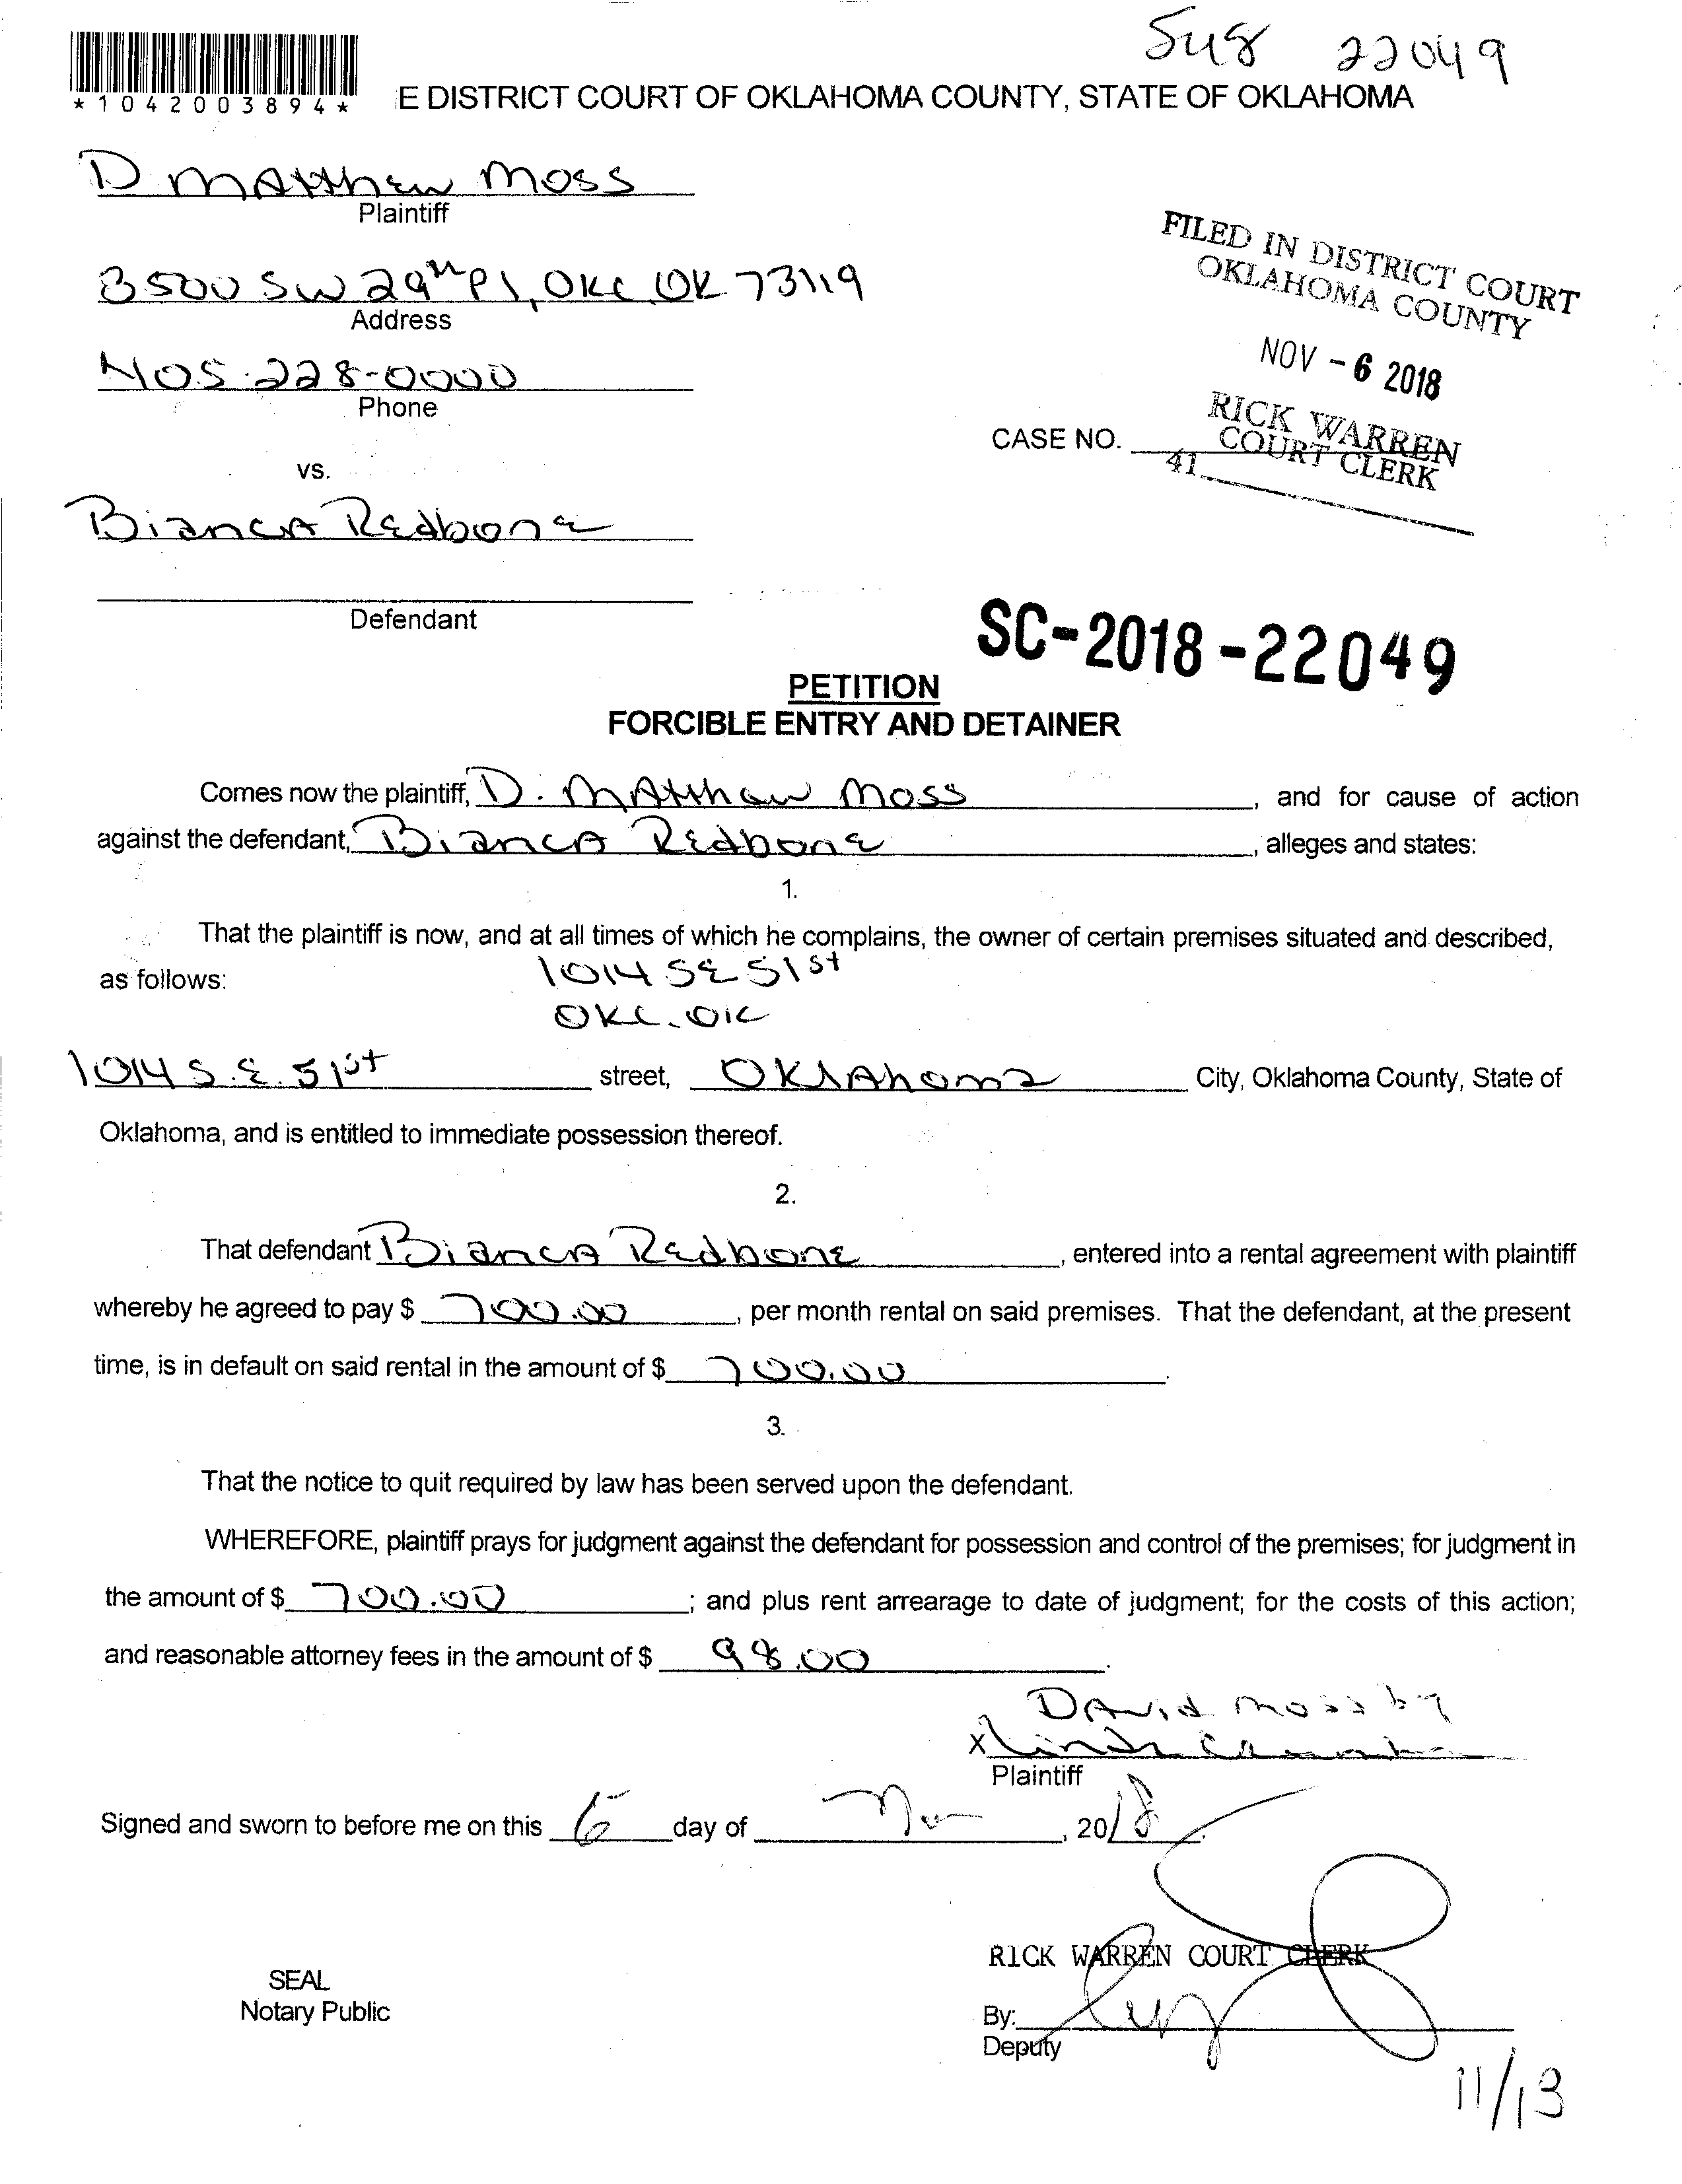 Sus 22049
*1042003894*
E DISTRICT COURT OF OKLAHOMA COUNTY, STATE OF OKLAHOMA
D Matthew Moss
Plaintiff
3500 SW 29th Pl, OKC OK 73119
Address
405-228-0000
Phone
vs.
Bianca Redbone
Defendant
FILED IN DISTRICT COURT
OKLAHOMA COUNTY
NOV - 6 2018
RICK WARREN
COURT CLERK
41
CASE NO.
SC-2018-22049
PETITION
FORCIBLE ENTRY AND DETAINER
Comes now the plaintiff, D. Matthew Moss, and for cause of action
against the defendant, Bianca Redbone, alleges and states:
1.
That the plaintiff is now, and at all times of which he complains, the owner of certain premises situated and described,
as follows: 1014 SE 51st
OKC. OK
1014 S.E. 51st street, Oklahoma City, Oklahoma County, State of
Oklahoma, and is entitled to immediate possession thereof.
2.
That defendant Bianca Redbone, entered into a rental agreement with plaintiff
whereby he agreed to pay $ 700.00, per month rental on said premises. That the defendant, at the present
time, is in default on said rental in the amount of $ 700.00.
3.
That the notice to quit required by law has been served upon the defendant.
WHEREFORE, plaintiff prays for judgment against the defendant for possession and control of the premises; for judgment in
the amount of $ 700.00; and plus rent arrearage to date of judgment; for the costs of this action;
and reasonable attorney fees in the amount of $ 98.00.
David Moss by
X Linda
Plaintiff
Signed and sworn to before me on this 6 day of Nov, 2018.
RICK WARREN COURT CLERK
SEAL
Notary Public
By:
Deputy
11/13